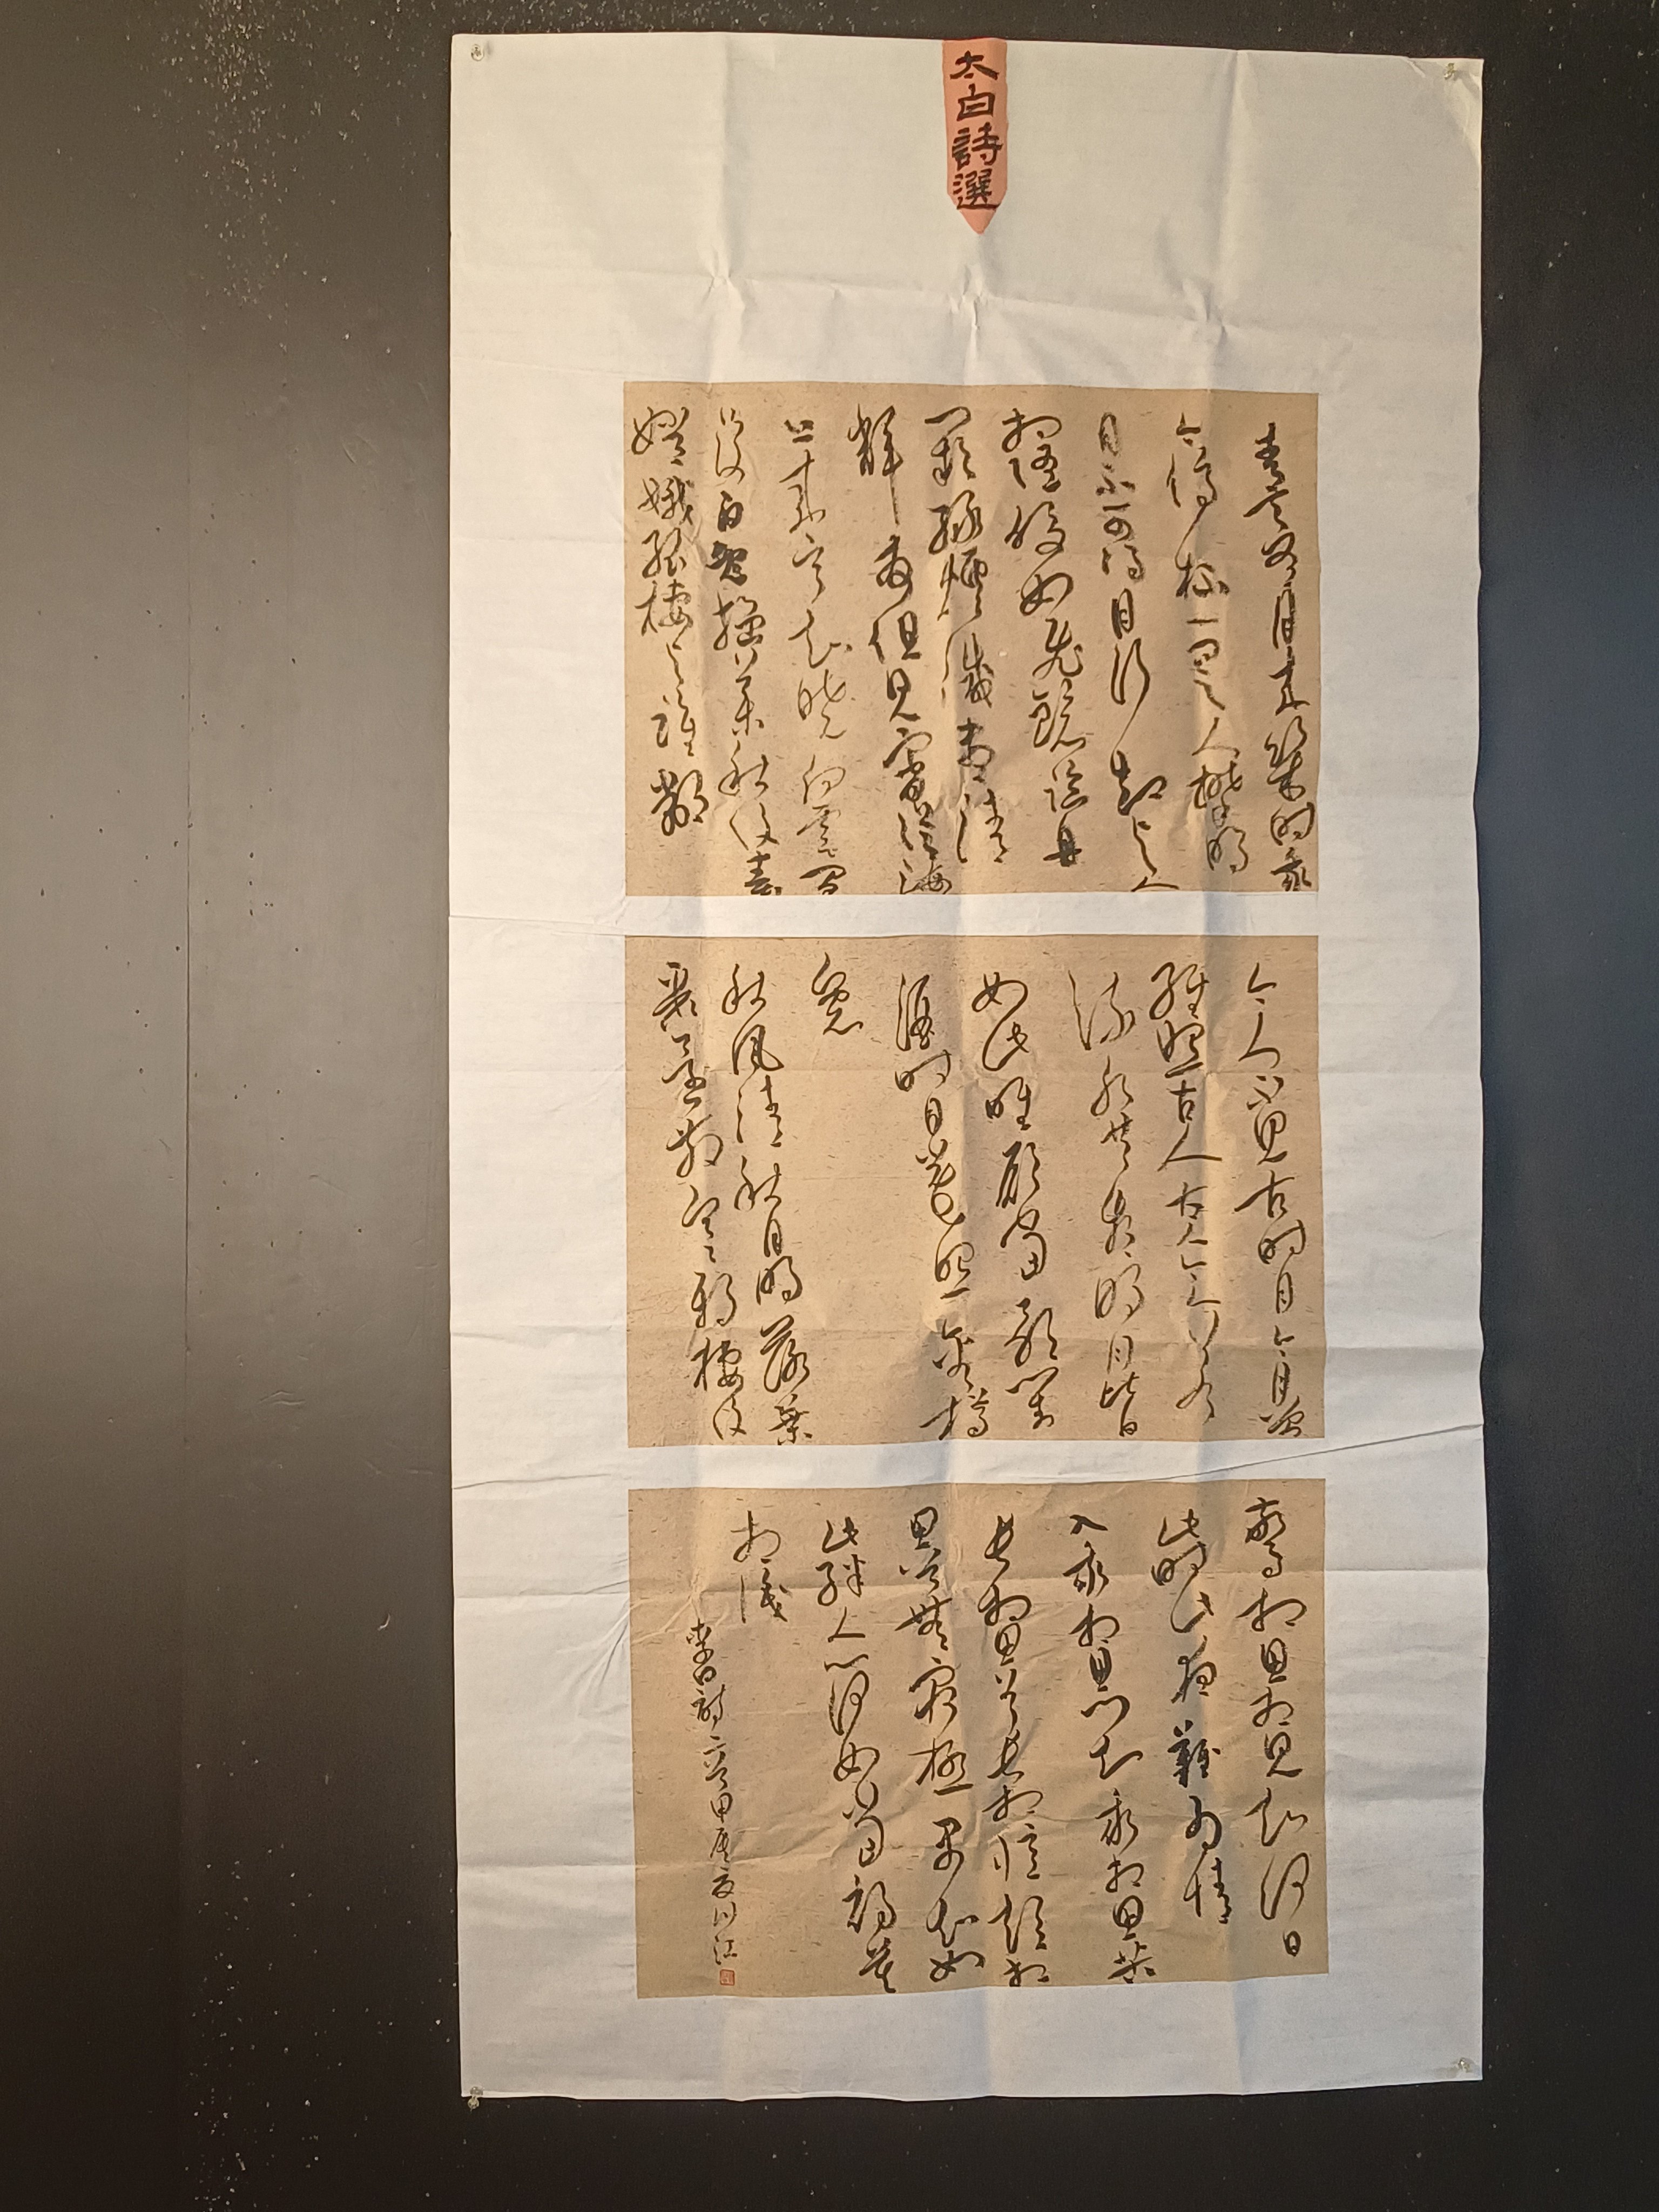 太白詩選
青天有月來幾時我
今停杯一問之人攀明
月不可得月行却與人
相隨皎如飛鏡臨丹
闕綠煙滅盡清
輝發但見宵從海
上來寧知曉向雲間
没白兔搗藥秋復春
嫦娥孤棲與誰鄰
今人不見古時月今月曾
經照古人古人今人若
流水共看明月皆
如此唯願當歌對
酒時月光長照金樽
裏
秋風清秋月明落葉
聚還散寒鴉棲復
驚相思相見知何日
此時此夜難爲情
入我相思門知我相思苦
長相思兮長相憶短相
思兮無窮極早知如
此絆人心何如當初莫
相識
李白詩二首甲辰夏江